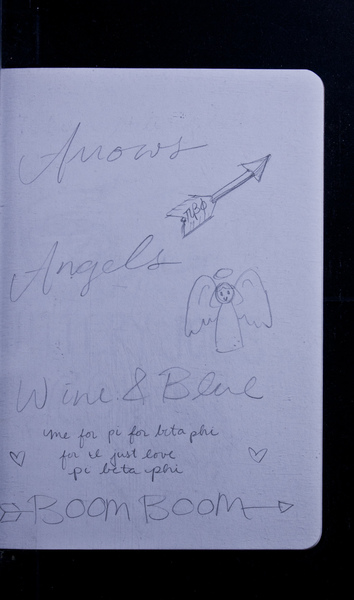 Arrows
πβφ
Angels
Wine & Blue
me for pi for beta phi
for i'l just love
pi beta phi
BOOM BOOM